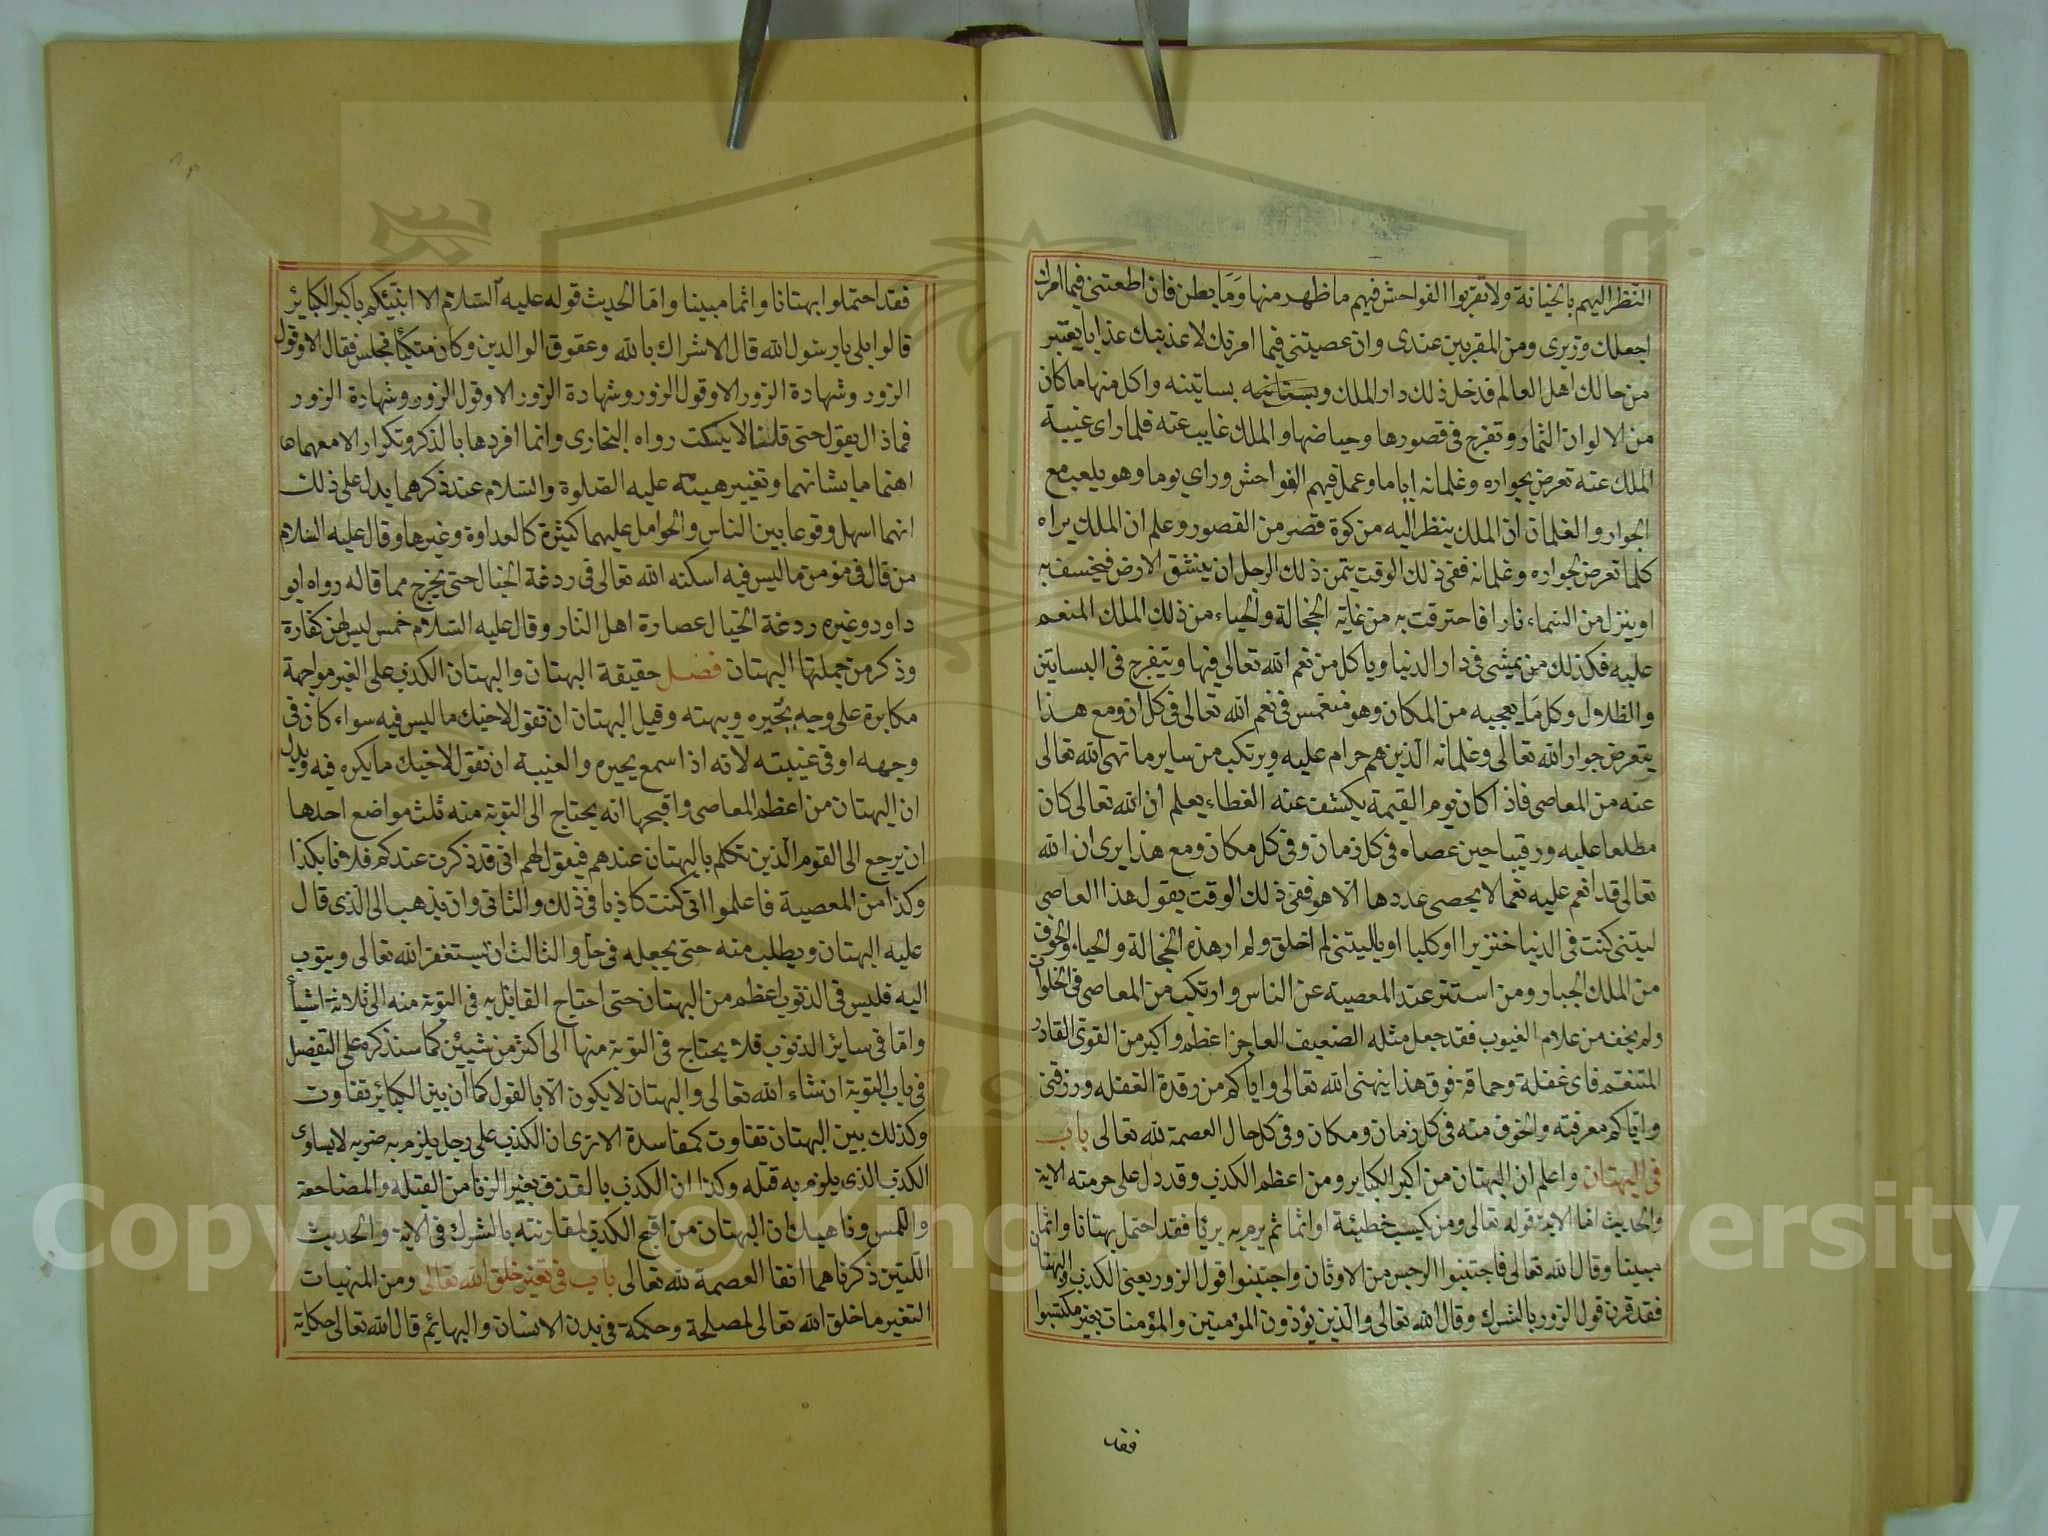 النظر اليهم بالخيانة ولا تقربوا الفواحش فيهم ما ظهر منها وما بطن فان اطعتنى فيما امرتك
اجعلك وزيرى ومن المقربين عندى وان عصيتنى فيما امرتك لاعذبنك عذابا يعتبر
من حالك اهل العالم فدخل ذلك دار الملك وبستانه بساتينه واكل منها ما كان
من الالوان الثمار وتفرج فى قصورها وحياضها والملك غايب عنه فلما راى غيبة
الملك عنه تعرض بجواره وغلمانه اياما وعمل فيهم الفواحش وراي يوما وهو يلعب مع
الجوار والغلمان ان الملك ينظر اليه من كوة قصر من القصور وعلم ان الملك يراه
كلما تعرض لجواره وغلمانه ففى ذلك الوقت يتمن ذلك الرجل ان ينشق الارض فيخسف به
او ينزل من السماء نارا فاحترقت به من غاية الخجالة والحياء من ذلك الملك المنعم
عليه فكذلك من يمشى فى دار الدنيا وياكل من نعم الله تعالى فيها ويتفرج فى البساتين
والظلال وكل ما يعجبه من المكان وهو منغمس فى نعم الله تعالى فى كل ان ومع هذا
يتعرض جوار الله تعالى وغلمانه الذين هم حرام عليه ويرتكب من ساير ما نهى الله تعالى
عنه من المعاصى فاذا كان يوم القيمة يكشف عنه الغطاء يعلم ان الله تعالى كان
مطلعا عليه ورقيبا حين عصاه فى كل زمان وفى كل مكان ومع هذا يرى ان الله
تعالى قد انعم عليه نعما لا يحصى عددها الا هو ففى ذلك الوقت يقول هذا العاصى
ليتنى كنت فى الدنيا خنزيرا او كلبا او ياليتنى لم اخلق ولم ار هذه الخجالة والحياء والخوف
من الملك الجبار ومن استتر عند المعصية عن الناس وارتكب من المعاصى فى الخلوات
ولم يخف من علام الغيوب فقد جعل مثله الضعيف العاجز اعظم واكبر من القوى القادر
المنتقم فاى غفلة وحماقة فوق هذا ينهنى الله تعالى واياكم من رقدة الغفله ورزقنى
واياكم معرفته والخوف منه فى كل زمان ومكان وفى كل حال العصمة لله تعالى باب
فى البهتان واعلم ان البهتان من اكبر الكباير ومن اعظم الكذب وقد دل على حرمته الاية
والحديث اما الاية قوله تعالى ومن يكسب خطيئة او اثما ثم يرم به بريئا فقد احتمل بهتانا واثما
مبينا وقال الله تعالى فاجتنبوا الرجس من الاوثان واجتنبوا قول الزور يعنى الكذب والبهتان
فقد قرن قول الزور بالشرك وقال الله تعالى والذين يؤذون المؤمنين والمؤمنات بغير ما كتسبوا
فقد
فقد احتملوا بهتانا واثما مبينا واما الحديث قوله عليه السلام الا انبئكم باكبر الكبائر
قالوا بلى يا رسول الله قال الاشراك بالله وعقوق الوالدين وكان متكيأ فجلس فقال الا وقول
الزور وشهادة الزور الا وقول الزور وشهادة الزور الا وقول الزور وشهادة الزور
فماذال يقول حتى قلنا لا يسكت رواه البخارى وانما افردها بالذكر وتكرار الا معهما
اهتماما بشانهما وتغيير هيئته عليه الصلوة والسلام عند ذكرهما يدل على ذلك
انهما اسهل وقوعا بين الناس والحوامل عليهما كثيرة كالعداوة وغيرها وقال عليه السلام
من قال فى مؤمن ما ليس فيه اسكنه الله تعالى فى ردغة الخبال حتى يخرج مما قاله رواه ابو
داود وغيره ردغة الخبال عصارة اهل النار وقال عليه السلام خمس ليس لهن كفارة
وذكر من جملتها البهتان فصل حقيقة البهتان والبهتان الكذب على الغير مواجهة
مكابرة على وجه يحيره ويبهته وقيل البهتان ان تقول لاخيك ما ليس فيه سواء كان فى
وجهه او فى غيبته لانه اذا سمع يحيره والغيبة ان تقول لاخيك ما يكره فيه ويدل
ان البهتان من اعظم المعاصى واقبحها انه يحتاج الى التوبة منه ثلث مواضع احدها
ان يرجع الى القوم الذين تكلم بالبهتان عندهم فيقول لهم انى قد ذكرت عندكم فلانا بكذا
وكذا من المعصية فاعلموا انى كنت كاذبا فى ذلك والثانى وان يذهب الى الذى قال
عليه البهتان ويطلب منه حتى يجعله فى حل والثالث ان يستغفر الله تعالى ويتوب
اليه فليس فى الذنوب اعظم من البهتان حتى احتاج القائل به فى التوبة منه الى ثلاثة اشيأ
واما فى سائر الذنوب فلا يحتاج فى التوبة منها الى اكثر من شيئين كما سنذكره على التفصيل
فى باب التوبة ان شاء الله تعالى والبهتان لا يكون الا بالقول كما ان بين الكبائر تفاوت
وكذلك بين البهتان تفاوت كمفاسدة الا ترى ان الكذب على رجل يلزم به ضربه لا يساوى
الكذب الذى يلزم به قتله وكذا ان الكذب بالقذف بغير الزنا من القبله والمضاجعة
واللمس وناهيك ان البهتان من اقبح الكذب لمقارنته بالشرك فى الاية والحديث
اللتين ذكرناهما انفا العصمة لله تعالى باب فى تغير خلق الله تعالى ومن المنهيات
التغير ما خلق الله تعالى لمصلحة وحكمة فى بدن الانسان والبهائم قال الله تعالى حكاية
Copyright © King Saud University